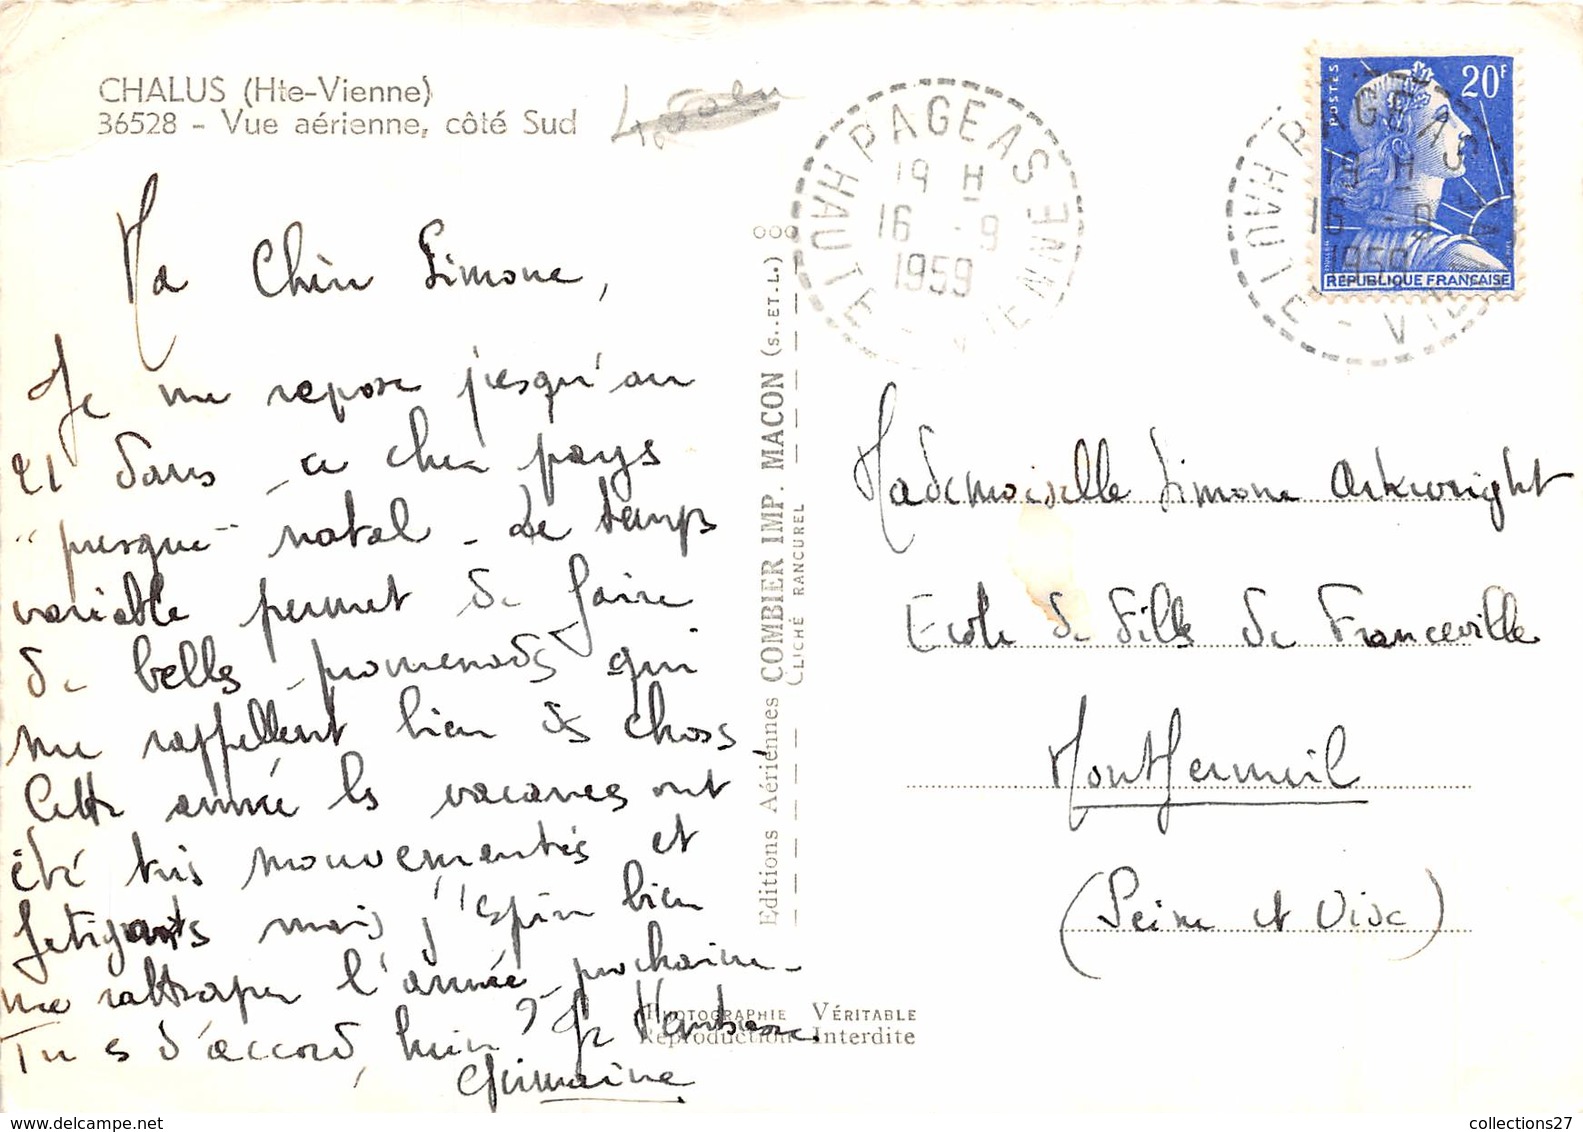 CHALUS (Hte-Vienne)
36528 - Vue aérienne, côté Sud
Ma Chère Simone,
Je me repose jusqu'au
21 dans ce cher pays
"presque" natal. Le temps
variable permet de faire
de belles promenades qui
me rappellent bien des choses.
Cette année les vacances ont
été très mouvementées et
fatigantes mais j'espère bien
me rattraper l'année prochaine.
Tu es d'accord, hein ? Je t'embrasse.
Germaine
Editions Aériennes COMBIER IMP. MACON (S.-ET-L.)
CLICHÉ RANCUREL
PHOTOGRAPHIE VÉRITABLE
Reproduction Interdite
PAGEAS
19 H
16 - 9
1959
HAUTE-VIENNE
POSTES
20F
REPUBLIQUE FRANÇAISE
PAGEAS
19 H
16 - 9
1959
HAUTE-VIENNE
Mademoiselle Simone Arkwright
Ecole de filles de Franceville
Montfermeil
(Seine et Oise)
collections27